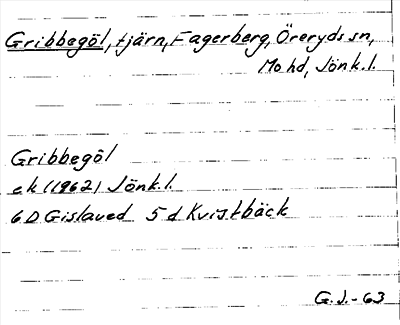 Gribbegöl, tjärn, Fagerberg, Öreryds sn,
Mo hd, Jönk. l.
Gribbegöl
ek (1962) Jönk. l.
6 D Gislaved 5 d Kvistbäck
G. J. - 63